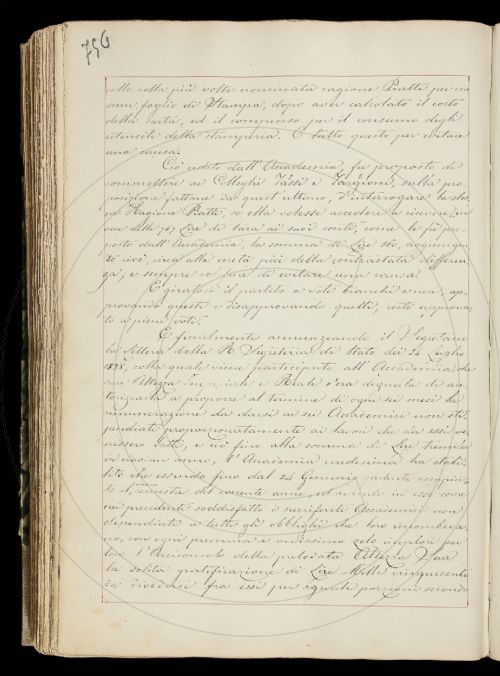 756
colto colla più volte nominata ragione Piatti per cia
scun foglio di Stampa, dopo aver calcolato il costo
della carta, ed il compenso per il consumo degli
utensili della stamperia. E tutto questo per evitare
una causa.
Ciò udito dall'Accademia, fu proposto di
commettere ai Colleghi Tassi e Targioni, sulla pro
posizione fattane da quest'ultimo, d'interrogare la stes
sa Ragione Piatti, se ella volesse accedere a ricevere, in
vece delle 767 Lire di tara ai suoi conti, come le fu pro
posto dall'Accademia, la somma di Lire 380, aggiungen
do cioè, circa alla metà più della contrastata differen
za; e sempre col fine di evitare una causa.
E girato il partito a voti bianchi e neri, ap
provando questi e disapprovando quelli, restò approva
to a pieni voti.
E finalmente annunziando il Segretario
la Lettera della R. Segreteria di Stato dei 14 Luglio
1828, colla quale viene participato all'Accademia che
sua Altezza Imperiale e Reale s'era degnata di au
torizzarla a proporre al termine di ogni sei mesi la
remunerazione da darsi ai sei Accademici non sti
pendiati proporzionatamente ai lavori che da essi ve
nissero fatti, e ciò fino alla somma di Lire
in un anno, l'Accademia medesima ha stabi
lito che essendo fino dal 24 Gennaio cadente compiu
to il semestre del corrente anno, ed avendo in esso come
nei precedenti soddisfatto i surriferiti Accademici non
stipendiati a tutti gli obblighi che loro incombeva
no, con ogni premura e vivissimo zelo implori per
loro l'Arciconsolo della prelodata Altezza Sua
la solita gratificazione di Lire Mille cinquecento
da dividersi fra essi per eguali porzioni secondo